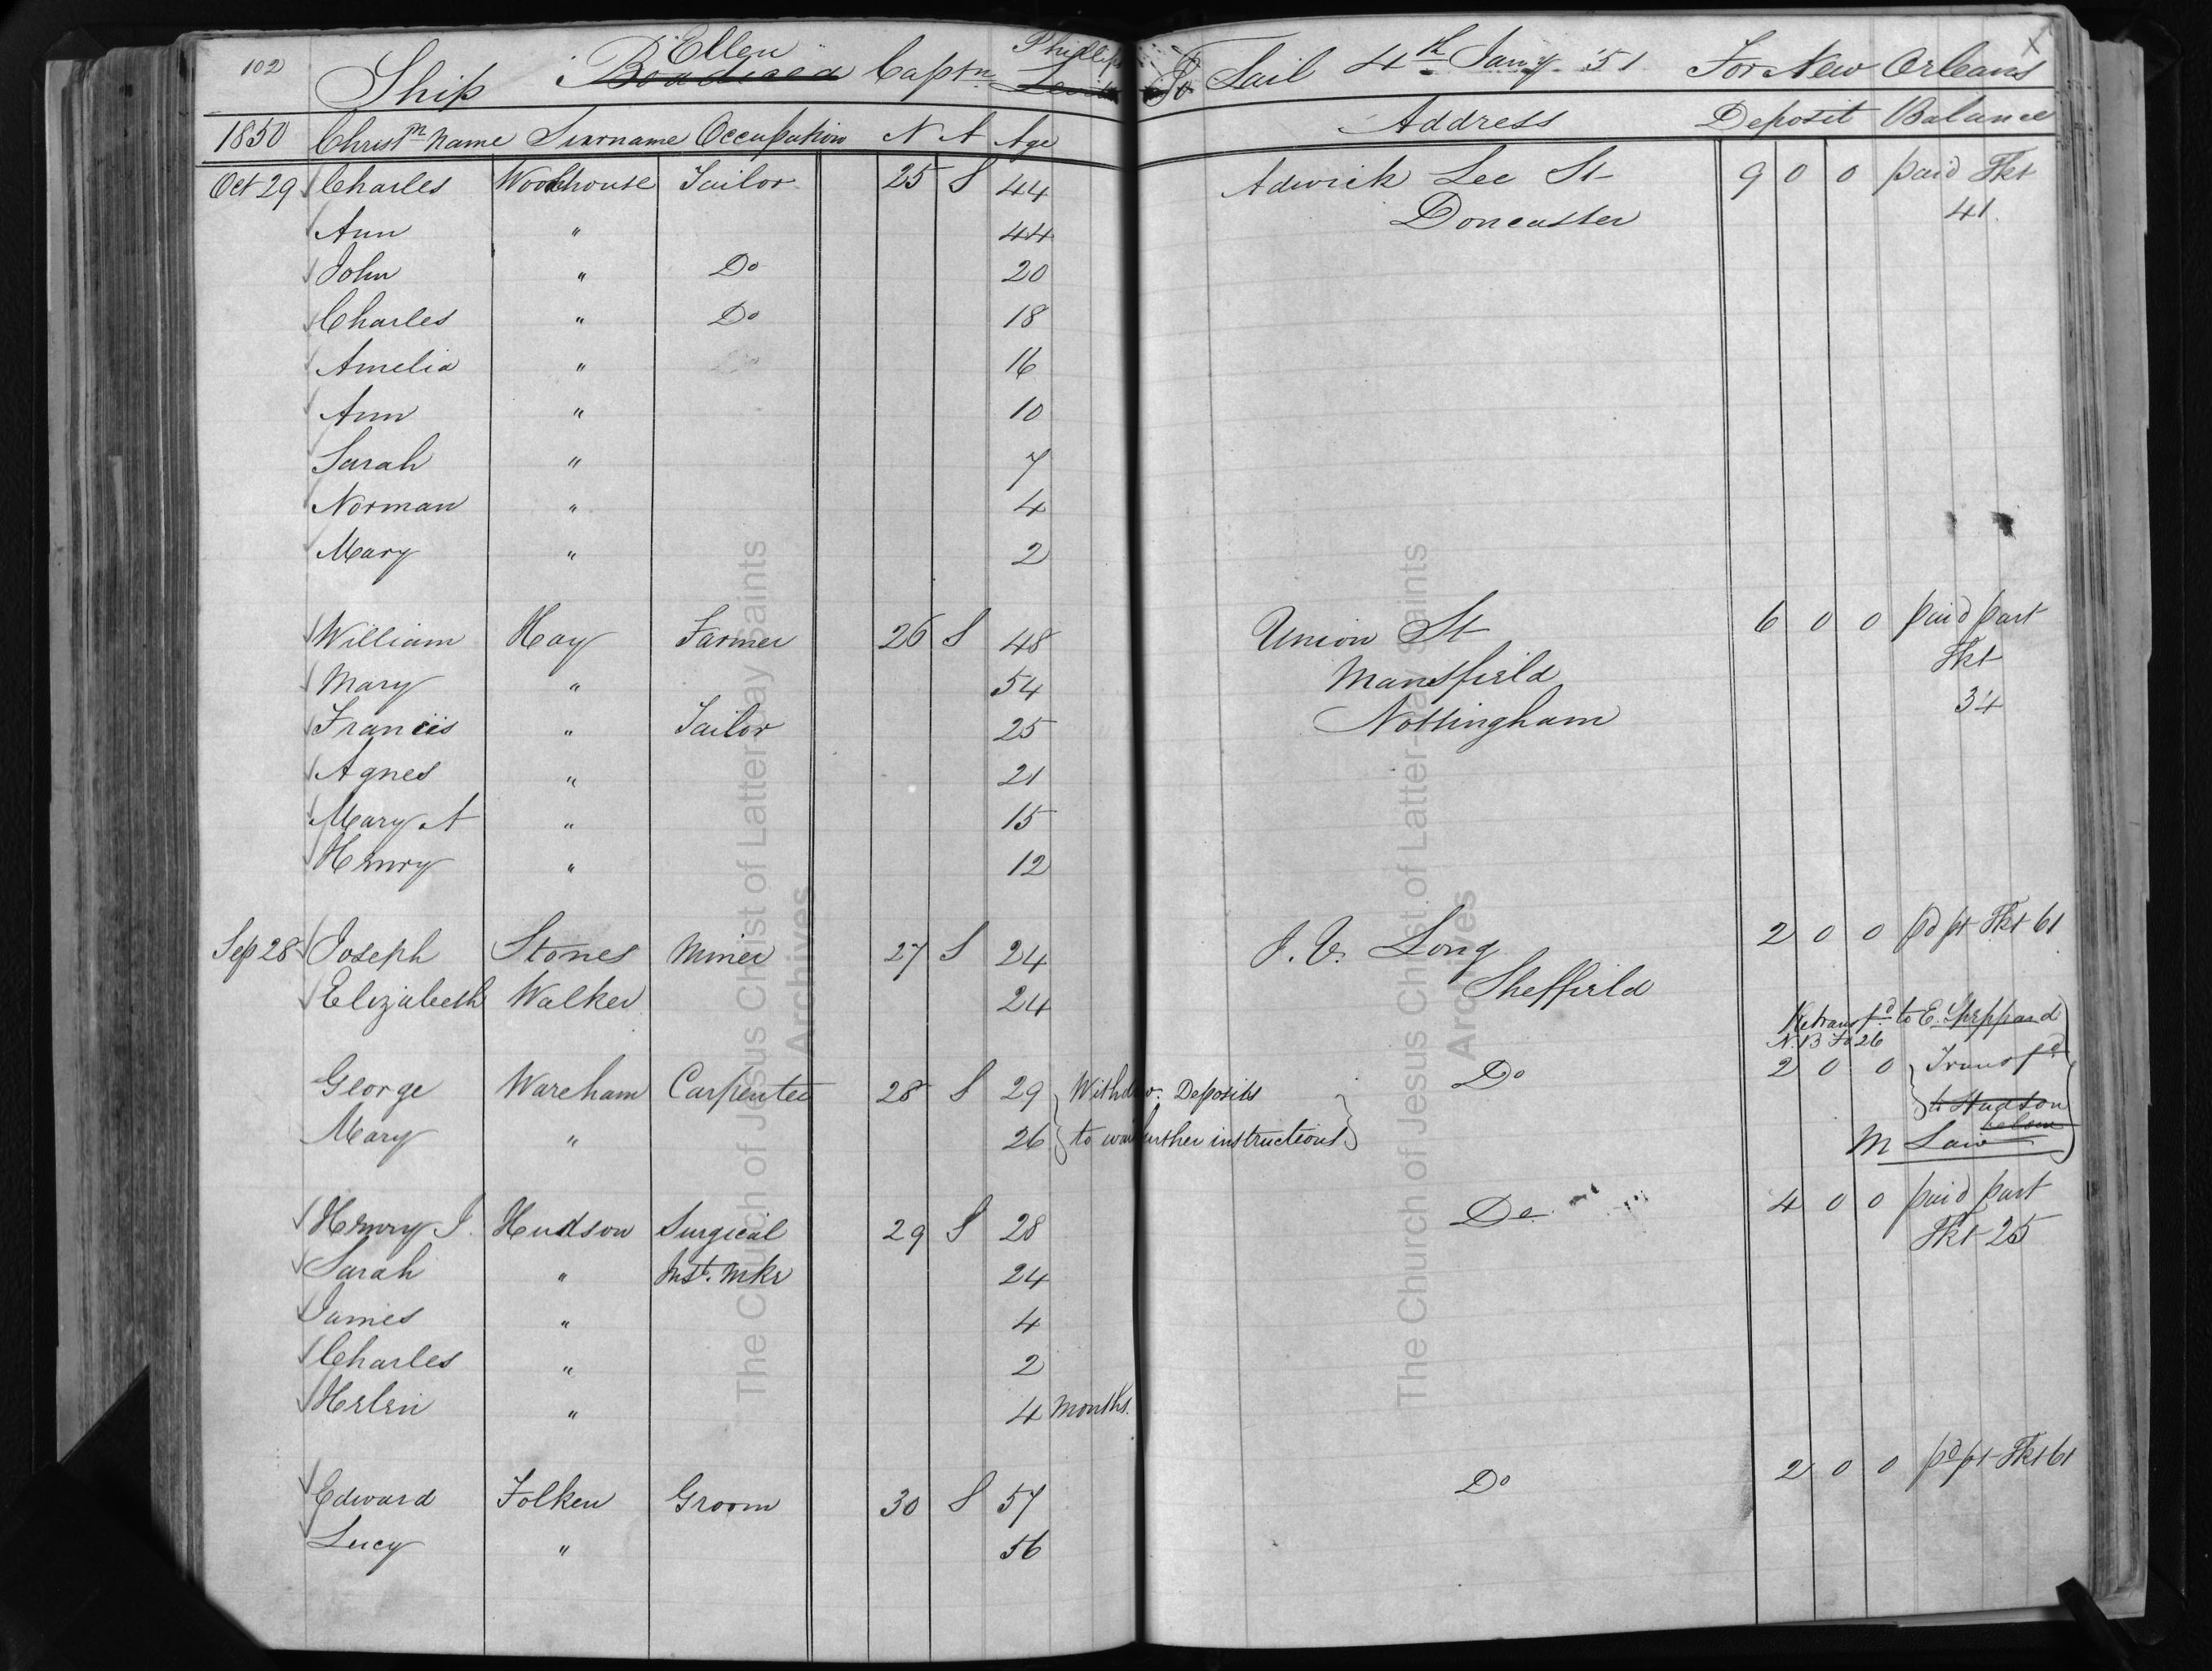 102 Ship Ellen Boadicea Captn Phillips To Sail 4th Jany. 51 For New Orleans X
1850 Christn Name Surname Occupation N A Age Address Deposit Balance
Oct 29 Charles Woodhouse Tailor 25 S 44 Adwick Lee St 9 0 0 paid Tkt
Ann " 44 Doncaster 41
John " Do 20
Charles " Do 18
Amelia " 16
Ann " 10
Sarah " 7
Norman " 4
Mary " 2
William Hay Farmer 26 S 48 Union St 6 0 0 paid part
Mary " 54 Mansfield Tkt
Francis " Tailor 25 Nottingham 34
Agnes " 21
Mary A " 15
Henry " 12
Sep 28 Joseph Stones Miner 27 S 24 J. V. Long 2 0 0 pd pt Tkt 61
Elizabeth Walker 24 Sheffield
Retransfd to E. Sheppard
N. 13 Fo 26
George Wareham Carpenter 28 S 29 Withdw. Deposits Do 2 0 0 Transfd
Mary " 26 to wait further instructions to Hudson
below
M Law
Henry J. Hudson Surgical 29 S 28 Do 4 0 0 paid part
Sarah " Inst. Mkr 24 Tkt 25
James " 4
Charles " 2
Helen " 4 Months.
Edward Folken Groom 30 S 57 Do 2 0 0 pd pt Tkt 61
Lucy " 56
The Church of Jesus Christ of Latter-day Saints
Archives
The Church of Jesus Christ of Latter-day Saints
Archives